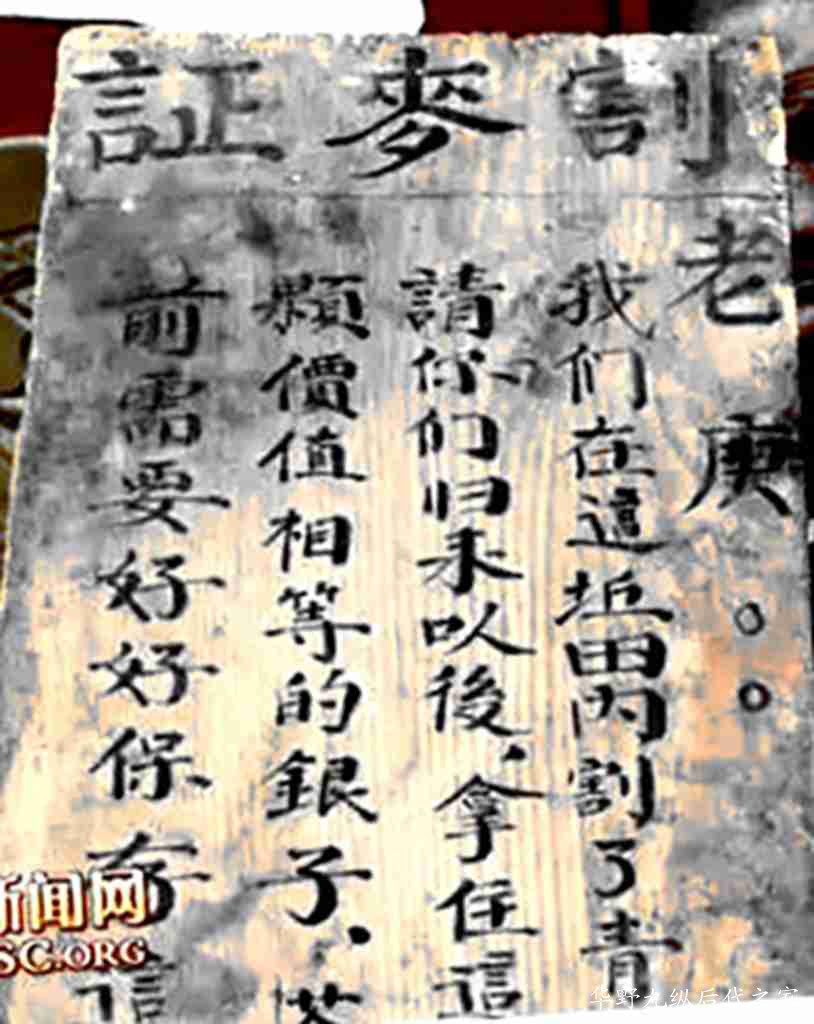 割麥証
老庚。。
我们在這坵田內割了青
請你们归来以後、拿住這
顆價值相等的銀子、若
前需要好好保存這
新闻网
SC.ORG
华野九纵后代之家